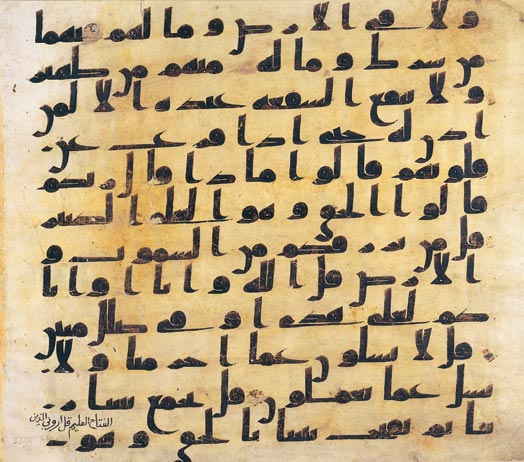 ولا في الارض وما لهم فيهما
من شرك وما له منهم من ظهير
ولا تنفع الشفعة عنده الا لمن
اذن له حتى اذا فزع عن
قلوبهم قالوا ماذا قال ربكم
قالوا الحق وهو العلي الكبير
قل من يرزقكم من السموت و
الارض قل الله وانا او ايا
كم لعلى هدى او في ضلل مبين
قل لا تسلون عما اجرمنا ولا
نسل عما تعملون قل يجمع بيننا ر
بنا ثم يفتح بيننا بالحق وهو
الفتاح العليم قل اروني الذين